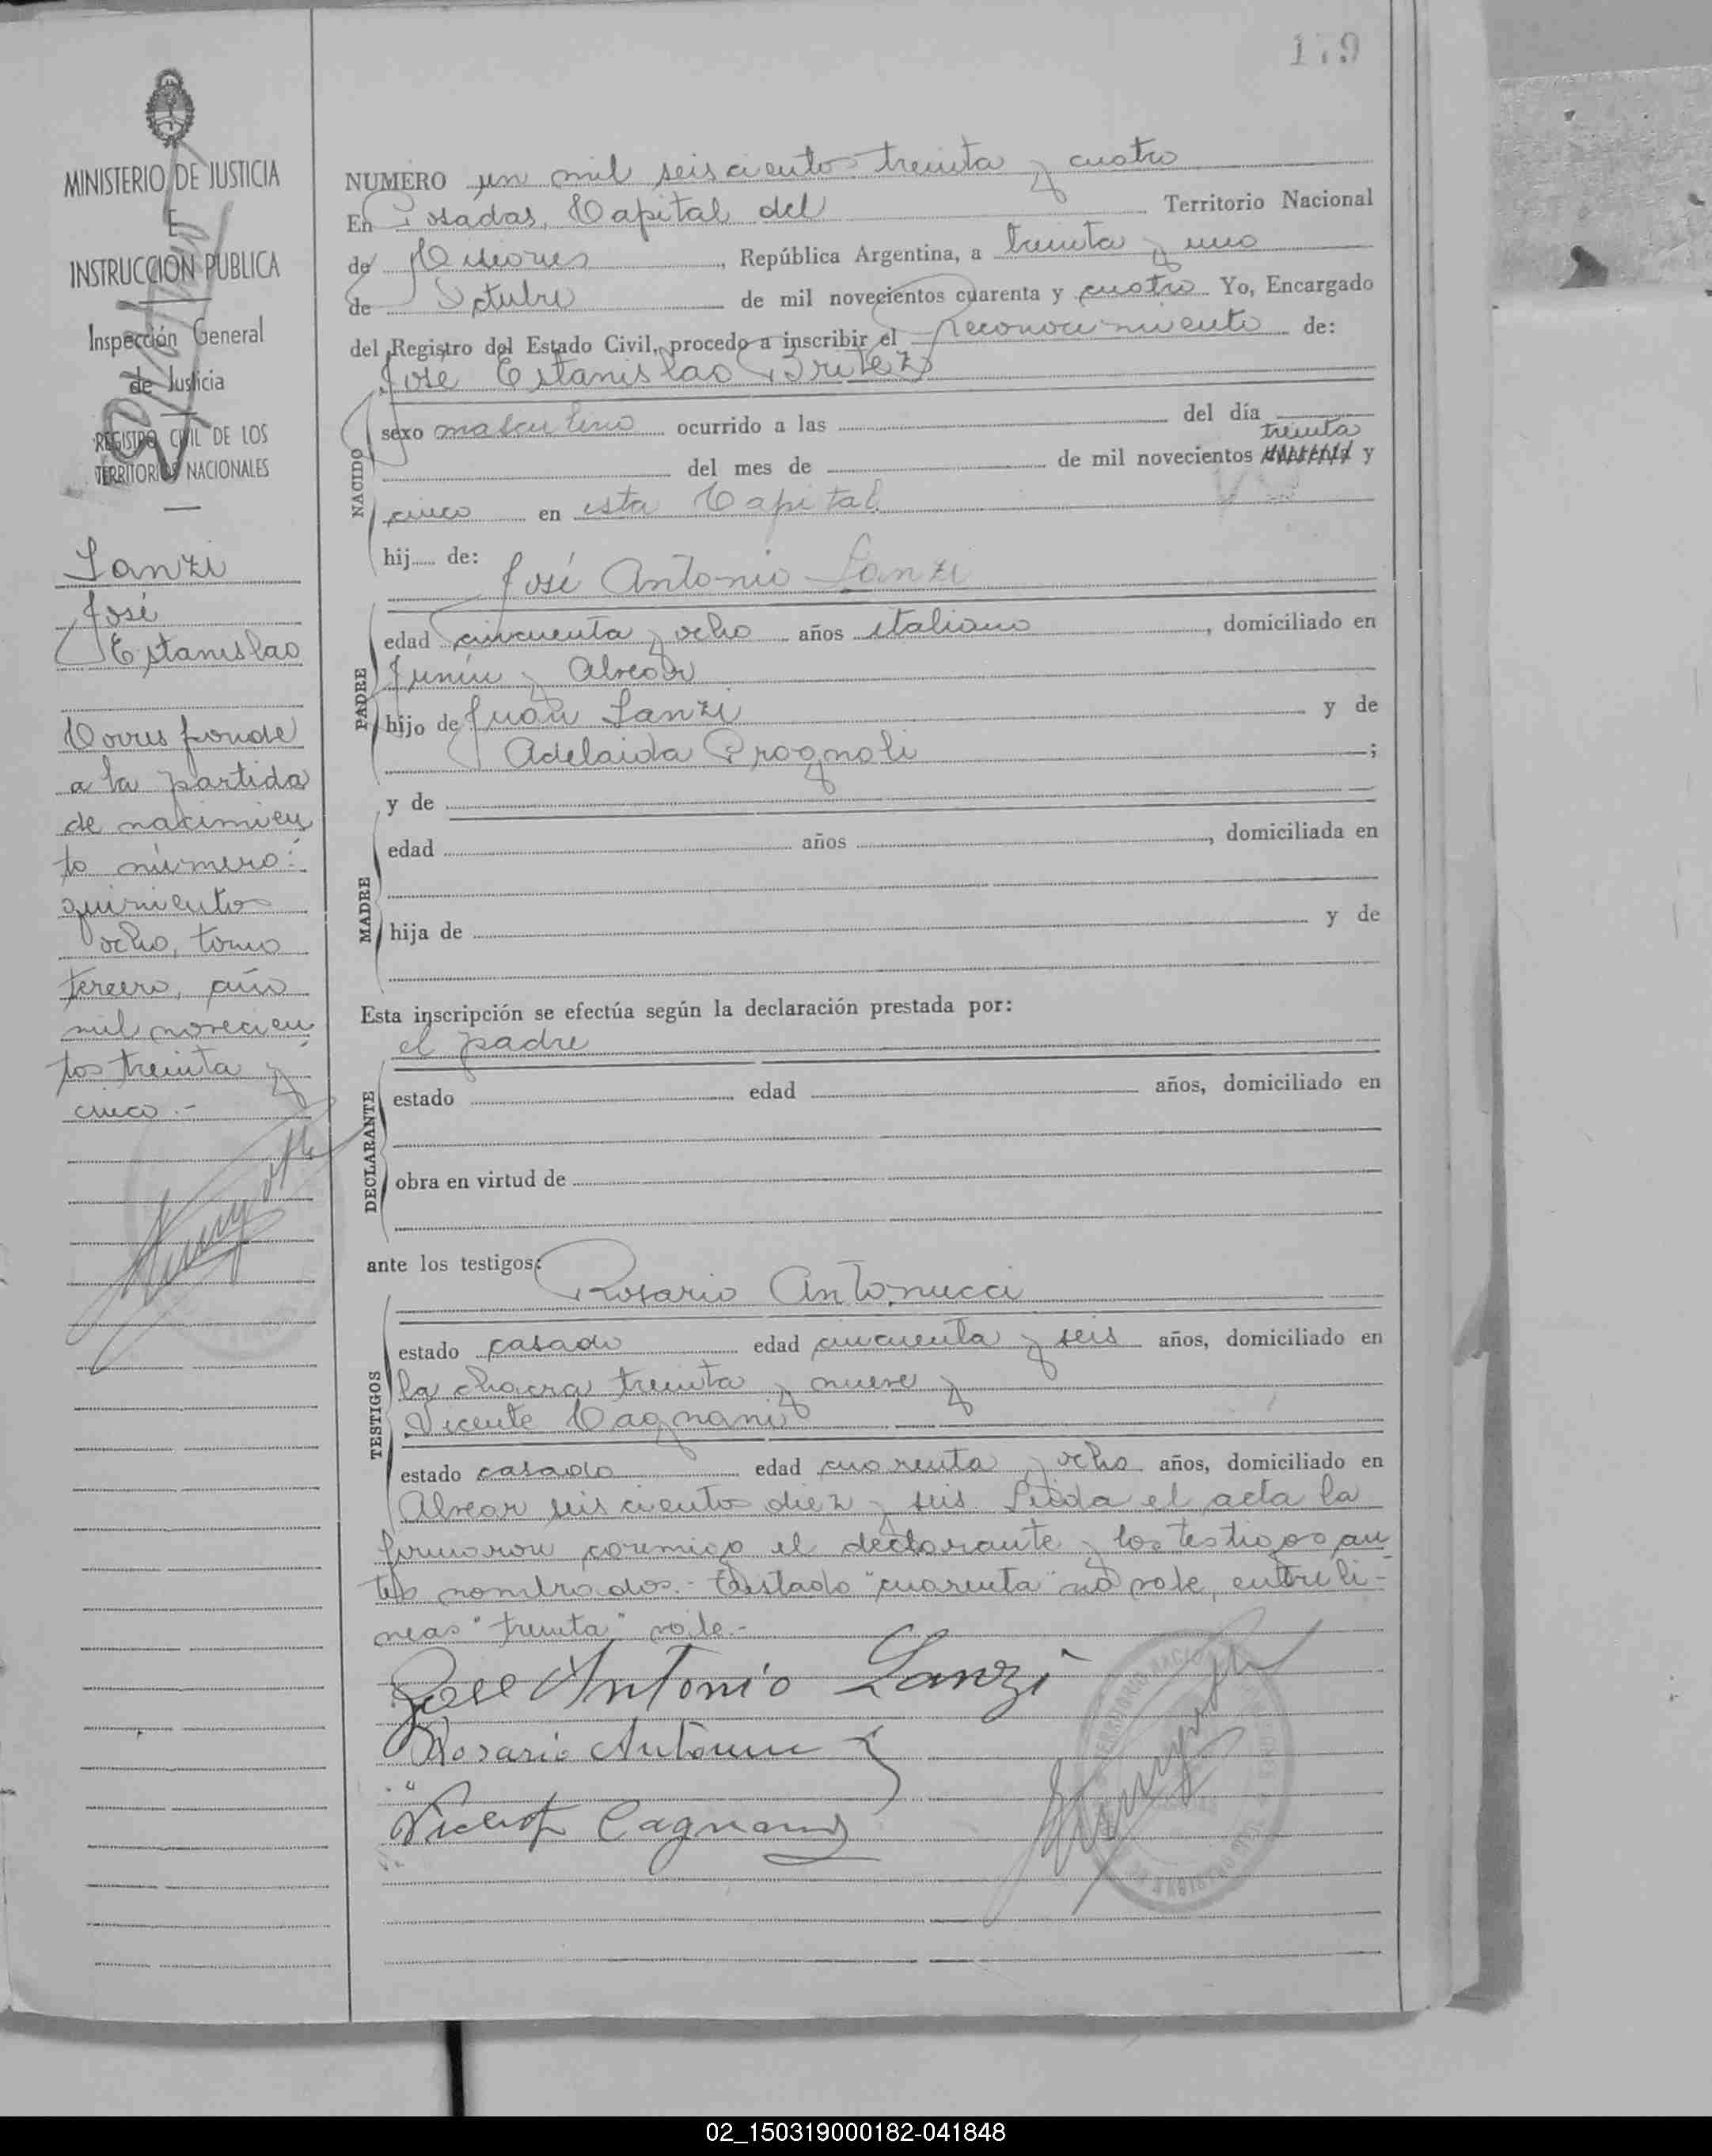 179
MINISTERIO DE JUSTICIA
E
INSTRUCCION PUBLICA
Inspección General
de Justicia
REGISTRO CIVIL DE LOS
TERRITORIOS NACIONALES
Lanzi
José
Estanislao
Corresponde
a la partida
de nacimien
to número:
quinientos
ocho, tomo
tercero, año
mil novecien
tos treinta y
cinco.-
NUMERO un mil seisciento treinta y cuatro
En Posadas, Capital del Territorio Nacional
de Misiones, República Argentina, a treinta y uno
de Octubre de mil novecientos cuarenta y cuatro Yo, Encargado
del Registro del Estado Civil, procedo a inscribir el reconocimiento de:
José Estanislao Britez
NACIDO
sexo masculino ocurrido a las del día
treinta
del mes de de mil novecientos cuarenta y
cinco en esta Capital
hij de:
José Antonio Lanzi
PADRE
edad cincuenta y ocho años italiano, domiciliado en
Junín y Alvear
hijo de Juan Lanzi y de
Adelaida Prognoli;
y de
MADRE
edad años, domiciliada en
hija de y de
Esta inscripción se efectúa según la declaración prestada por:
el padre
DECLARANTE
estado edad años, domiciliado en
obra en virtud de
ante los testigos:
Rosario Antonucci
TESTIGOS
estado casado edad cincuenta y seis años, domiciliado en
la chacra treinta y nueve y
Vicente Cagnani
estado casado edad cuarenta y ocho años, domiciliado en
Alvear seiscientos diez y seis. Leida el acta la
firmaron conmigo el declarante y los testigos an
tes nombrados.- Testado "cuarenta" no vale, entreli-
neas "treinta" vale.-
José Antonio Lanzi
Rosario Antonucci
Vicente Cagnani
02_150319000182-041848